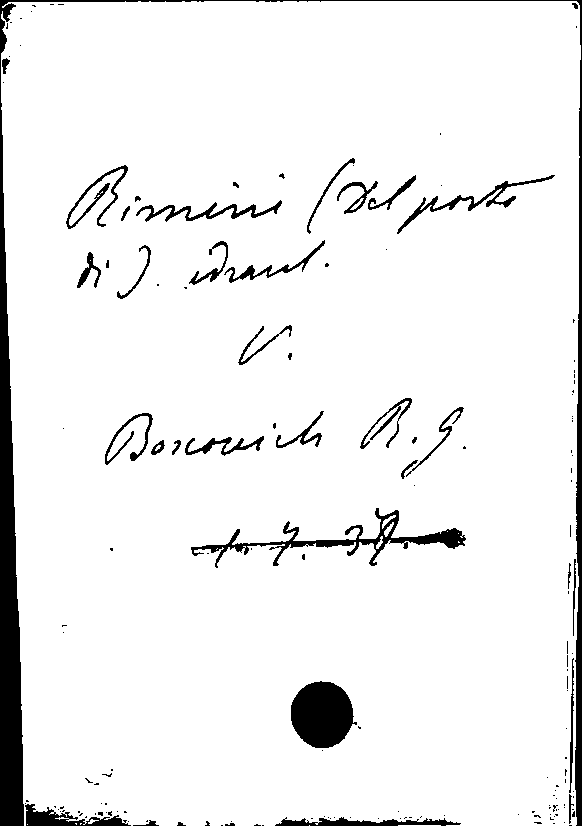 Rimini (Del porto
di). idraul.
V.
Boscovich R. G.
1. 7. 37.